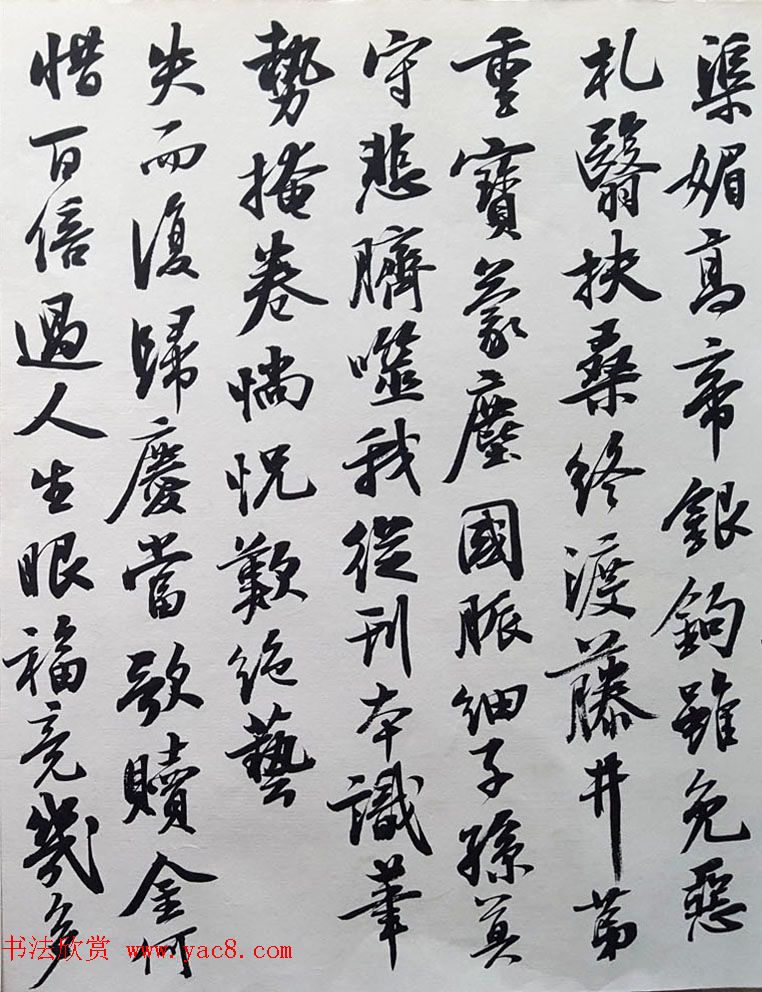 渠媚高帝銀鉤雖免惡
札翳扶桑終渡藤井第
重寶蒙塵國脈細子孫莫
守悲臍噬我從刊本識筆
勢掩卷惝怳歎絶藝
失而復歸慶當歌贖金何
惜百倍過人生眼福竟幾多
书法欣赏 www.yac8.com